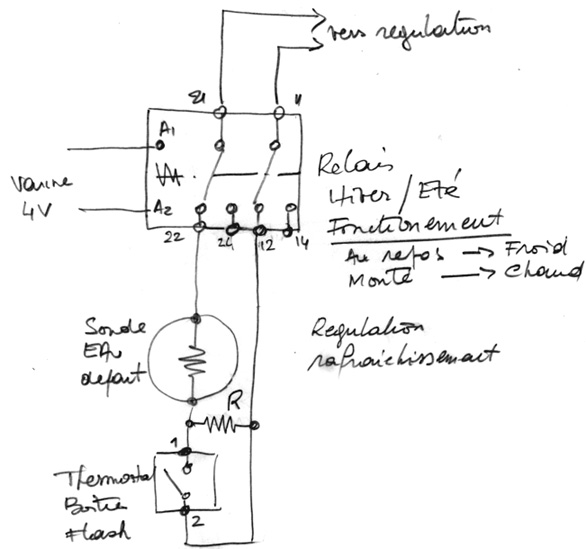 vers regulation
21 11
A1
Vanne
4V
A2
22 24 12 14
Relais
Hiver / Eté
Fonctionement
Au repos → Froid
Monté → Chaud
Sonde
départ
Regulation
rafraichissement
R
1
Thermostat
Boitier
Flash
2